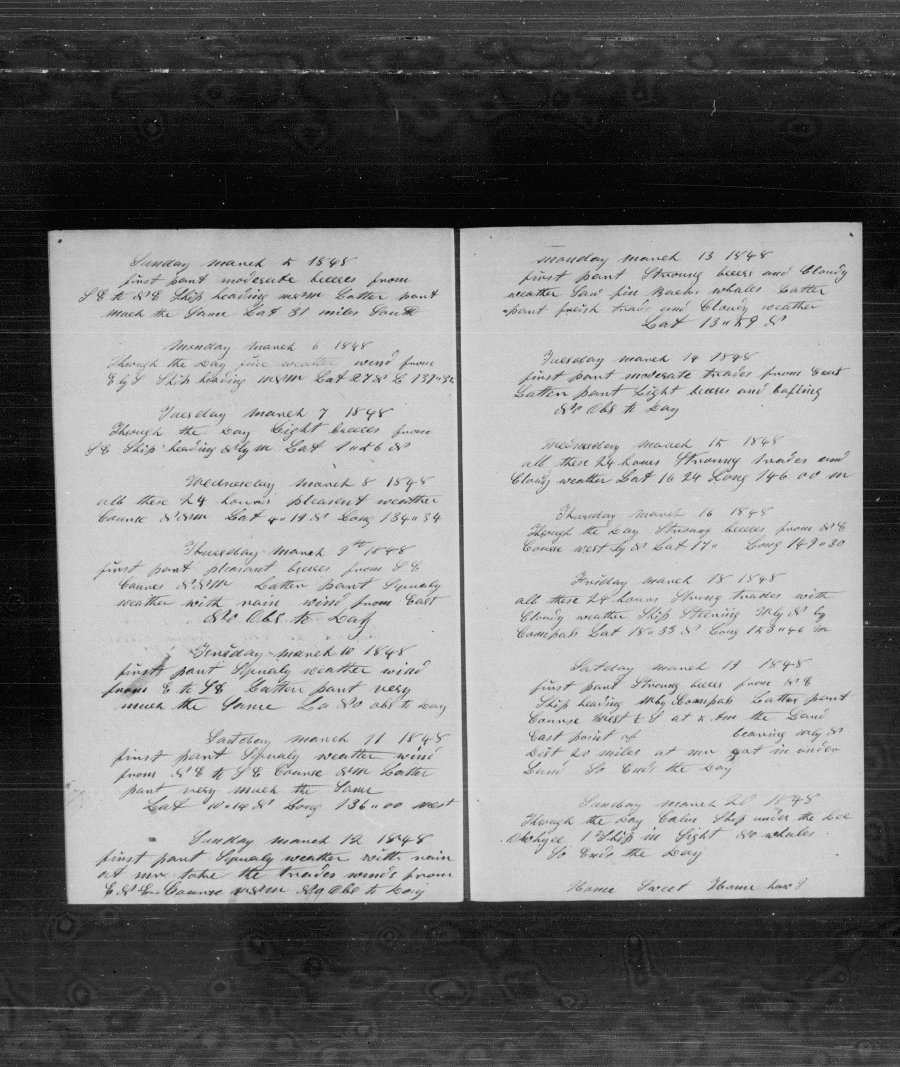 Sunday march 5 1848
first part moderate breeses from
S E to N E Ship heading Latter part
much the Same Lat 31 miles South
Monday march 6 1848
Through the Day fine weather wind from
E by S Ship heading Lat 27 N L
Tuesday march 7 1848
Through the Day Light breeses from
S E Ship heading N by W Lat 1"26 N
Wednesday march 8 1848
all these 24 hours pleasant weather
Course N N W Lat 4"19 N Long 134"34
Thursday march 9th 1848
first part pleasant breeses from S E
Course N N W Latter part Squaly
weather with rain wind from East
No Obs to Day
Friday march 10 1848
first part Squaly weather wind
from E to S E Latter part very
much the Same No obs to Day
Satebay march 11 1848
first part Squaly weather wind
from N E to S E Course N W Latter
part very much the Same
Lat 10"14 N Long 136"00 West
Sunday march 12 1848
first part Squaly weather with rain
at mr take the trades winds from
E N E Course No Obs to Day
monday march 13 1848
first part Stroung beeses and Cloudy
weather Saw fin Backs whales Latter
part freish trads and Cloudy weather
Lat 13"59 N
Tuesday march 14 1848
first part moderate trades from East
Latter part Light breeses and bafling
No Obs to Day
Wednesday march 15 1848
all these 24 hours Stroung trades and
Cloudy weather Lat 16 24 Long 146 00 W
Thursday march 16 1848
Through the Day Stroung breeses from N E
Course west by N Lat 17" Long 149"30
Friday march 18 1848
all these 24 hours Strong trades with
Cloudy weather Ship Steering W by N by
Compass Lat 18"33 N Long 153"46 W
Satday march 19 1848
first part Stroung breses from N E
Ship heading W by Compass Latter part
Course West & S at 5 Am the Land
East point of bearing W by N
Dist 20 miles at mr got in under
Land So Ends the Day
Sunday march 20 1848
Through the Day Calm Ship under the Lee
Owhyee 1 Ship in Sight No whales
So Ends the Day
Home Sweet Home